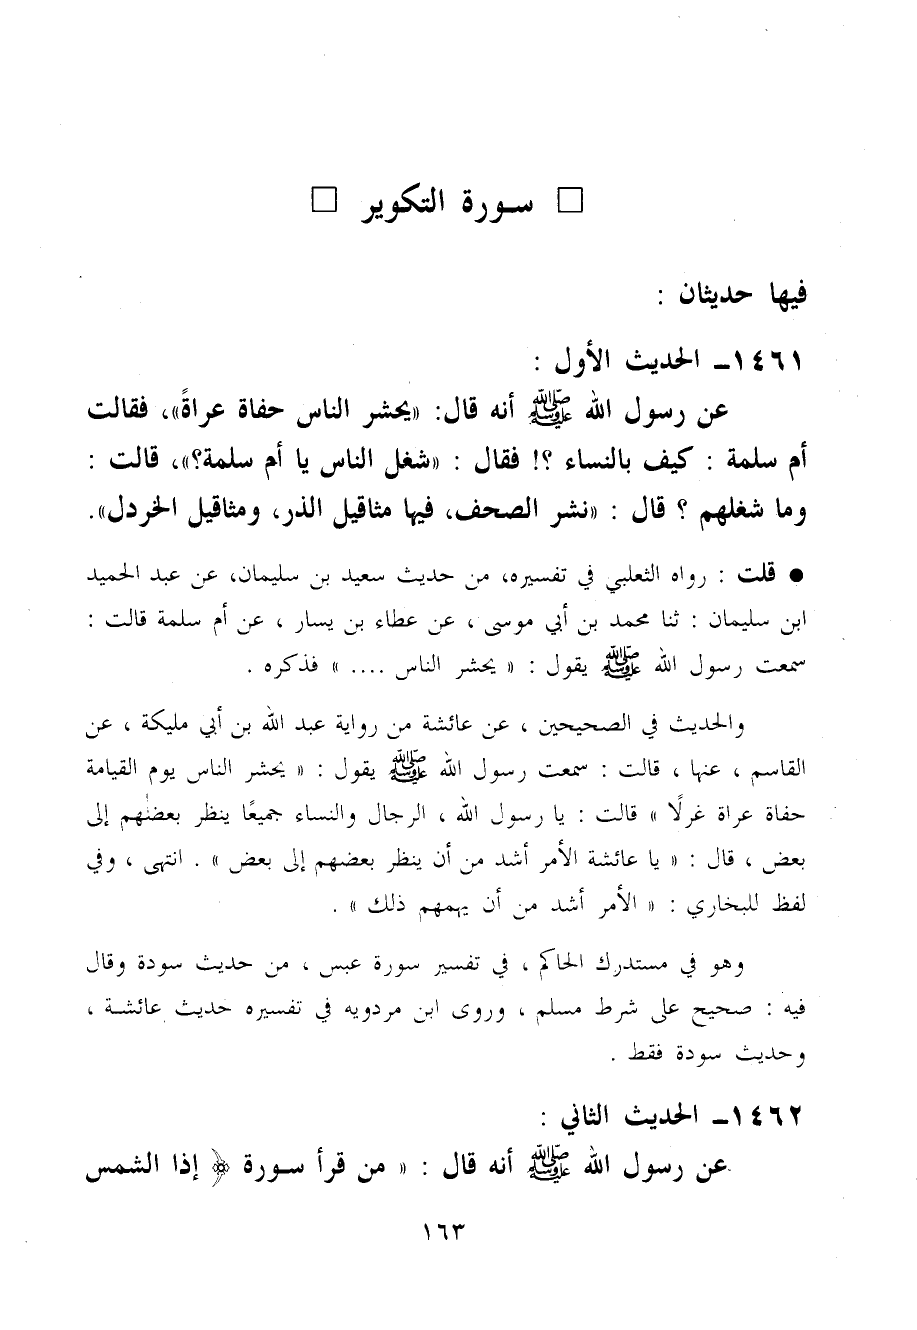 □ سورة التكوير □
فيها حديثان :
١٤٦١ـ الحديث الأول :
عن رسول الله ﷺ أنه قال: «يحشر الناس حفاة عراةً»، فقالت
أم سلمة : كيف بالنساء ؟! فقال : «شغل الناس يا أم سلمة؟»، قالت :
وما شغلهم ؟ قال : «نشر الصحف، فيها مثاقيل الذر، ومثاقيل الخردل».
● قلت : رواه الثعلبي في تفسيره، من حديث سعيد بن سليمان، عن عبد الحميد
ابن سليمان : ثنا محمد بن أبي موسى ، عن عطاء بن يسار ، عن أم سلمة قالت :
سمعت رسول الله ﷺ يقول : « يحشر الناس .... » فذكره .
والحديث في الصحيحين ، عن عائشة من رواية عبد الله بن أبي مليكة ، عن
القاسم ، عنها ، قالت : سمعت رسول الله ﷺ يقول : « يحشر الناس يوم القيامة
حفاة عراة غرلًا » قالت : يا رسول الله ، الرجال والنساء جميعًا ينظر بعضهم إلى
بعض ، قال : « يا عائشة الأمر أشد من أن ينظر بعضهم إلى بعض » . انتهى ، وفي
لفظ للبخاري : « الأمر أشد من أن يهمهم ذلك » .
وهو في مستدرك الحاكم ، في تفسير سورة عبس ، من حديث سودة وقال
فيه : صحيح على شرط مسلم ، وروى ابن مردويه في تفسيره حديث عائشة ،
وحديث سودة فقط .
١٤٦٢ـ الحديث الثاني :
عن رسول الله ﷺ أنه قال : « من قرأ سورة ﴿ إذا الشمس
١٦٣